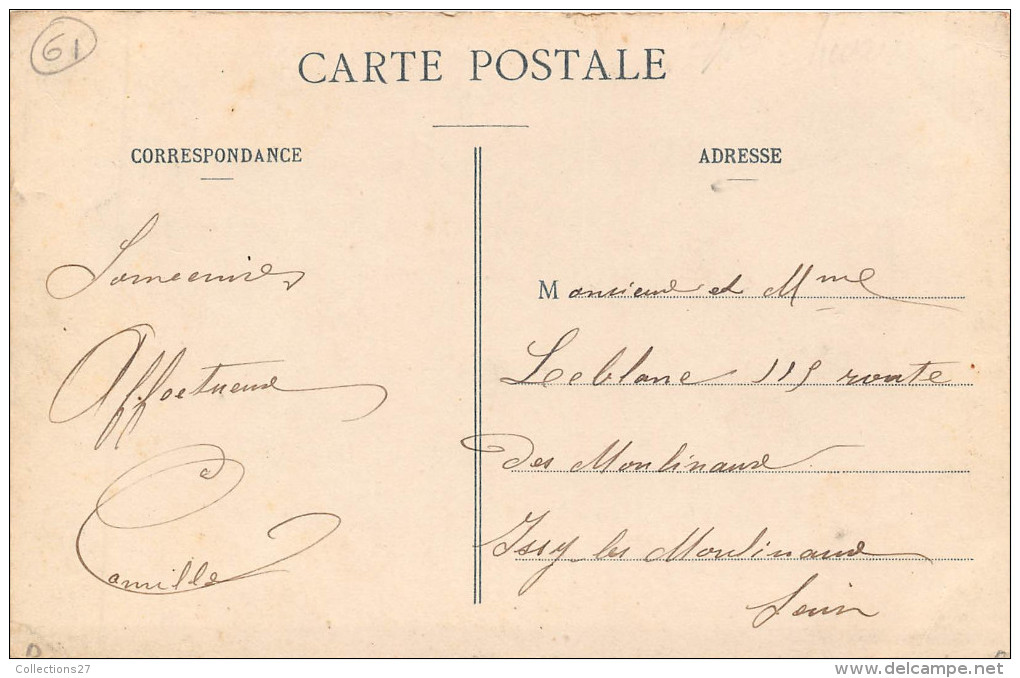 61
CARTE POSTALE
CORRESPONDANCE
Souvenirs
Affectueux
Camille
ADRESSE
Monsieur et Mme
Leblanc 115 route
des Moulineaux
Issy les Moulineaux
Seine
Collections27
delcampe.net